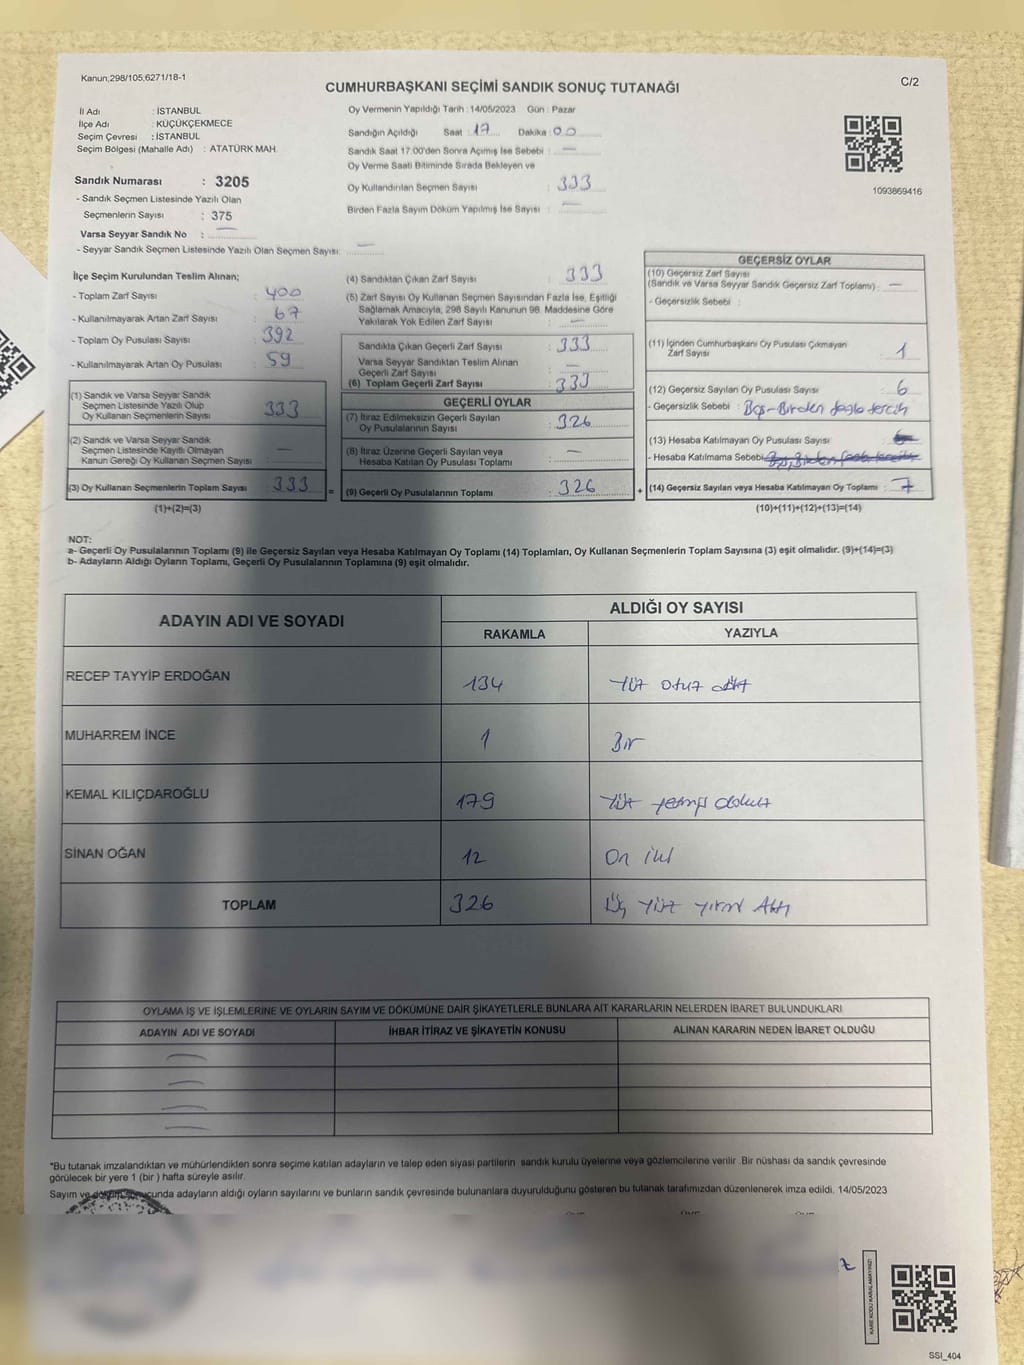 Kanun,298/105,6271/18-1
C/2
CUMHURBAŞKANI SEÇİMİ SANDIK SONUÇ TUTANAĞI
İl Adı : İSTANBUL
İlçe Adı : KÜÇÜKÇEKMECE
Seçim Çevresi : İSTANBUL
Seçim Bölgesi (Mahalle Adı) : ATATÜRK MAH.
Sandık Numarası : 3205
- Sandık Seçmen Listesinde Yazılı Olan
Seçmenlerin Sayısı : 375
Varsa Seyyar Sandık No : —
- Seyyar Sandık Seçmen Listesinde Yazılı Olan Seçmen Sayısı: —
Oy Vermenin Yapıldığı Tarih : 14/05/2023 Gün : Pazar
Sandığın Açıldığı Saat : 17 Dakika : 00
Sandık Saat 17:00'den Sonra Açımış İse Sebebi : —
Oy Verme Saati Bitiminde Sırada Bekleyen ve
Oy Kullandırılan Seçmen Sayısı : 333
Birden Fazla Sayım Döküm Yapılmış İse Sayısı : —
1093869416
İlçe Seçim Kurulundan Teslim Alınan;
- Toplam Zarf Sayısı : 400
- Kullanılmayarak Artan Zarf Sayısı : 67
- Toplam Oy Pusulası Sayısı : 392
- Kullanılmayarak Artan Oy Pusulası : 59
(1) Sandık ve Varsa Seyyar Sandık
Seçmen Listesinde Yazılı Olup
Oy Kullanan Seçmenlerin Sayısı : 333
(2) Sandık ve Varsa Seyyar Sandık
Seçmen Listesinde Kayıtlı Olmayan
Kanun Gereği Oy Kullanan Seçmen Sayısı : —
(3) Oy Kullanan Seçmenlerin Toplam Sayısı : 333 =
(1)+(2)=(3)
(4) Sandıktan Çıkan Zarf Sayısı : 333
(5) Zarf Sayısı Oy Kullanan Seçmen Sayısından Fazla İse, Eşitliği
Sağlamak Amacıyla, 298 Sayılı Kanunun 98. Maddesine Göre
Yakılarak Yok Edilen Zarf Sayısı : —
Sandıkta Çıkan Geçerli Zarf Sayısı : 333
Varsa Seyyar Sandıktan Teslim Alınan
Geçerli Zarf Sayısı : —
(6) Toplam Geçerli Zarf Sayısı : 333
GEÇERLİ OYLAR
(7) İtiraz Edilmeksizin Geçerli Sayılan
Oy Pusulalarının Sayısı : 326
(8) İtiraz Üzerine Geçerli Sayılan veya
Hesaba Katılan Oy Pusulası Toplamı : —
(9) Geçerli Oy Pusulalarının Toplamı : 326 +
GEÇERSİZ OYLAR
(10) Geçersiz Zarf Sayısı
(Sandık ve Varsa Seyyar Sandık Geçersiz Zarf Toplamı) : —
- Geçersizlik Sebebi :
(11) İçinden Cumhurbaşkanı Oy Pusulası Çıkmayan
Zarf Sayısı : 1
(12) Geçersiz Sayılan Oy Pusulası Sayısı : 6
- Geçersizlik Sebebi : Boş-Birden fazla tercih
(13) Hesaba Katılmayan Oy Pusulası Sayısı :
- Hesaba Katılmama Sebebi :
(14) Geçersiz Sayılan veya Hesaba Katılmayan Oy Toplamı : 7
(10)+(11)+(12)+(13)=(14)
NOT:
a- Geçerli Oy Pusulalarının Toplamı (9) ile Geçersiz Sayılan veya Hesaba Katılmayan Oy Toplamı (14) Toplamları, Oy Kullanan Seçmenlerin Toplam Sayısına (3) eşit olmalıdır. (9)+(14)=(3)
b- Adayların Aldığı Oyların Toplamı, Geçerli Oy Pusulalarının Toplamına (9) eşit olmalıdır.
ADAYIN ADI VE SOYADI
ALDIĞI OY SAYISI
RAKAMLA YAZIYLA
RECEP TAYYİP ERDOĞAN 134 Yüz otuz dört
MUHARREM İNCE 1 Bir
KEMAL KILIÇDAROĞLU 179 Yüz yetmiş dokuz
SİNAN OĞAN 12 On iki
TOPLAM 326 Üç yüz yirmi Altı
OYLAMA İŞ VE İŞLEMLERİNE VE OYLARIN SAYIM VE DÖKÜMÜNE DAİR ŞİKAYETLERLE BUNLARA AİT KARARLARIN NELERDEN İBARET BULUNDUKLARI
ADAYIN ADI VE SOYADI İHBAR İTİRAZ VE ŞİKAYETİN KONUSU ALINAN KARARIN NEDEN İBARET OLDUĞU
*Bu tutanak imzalandıktan ve mühürlendikten sonra seçime katılan adayların ve talep eden siyasi partilerin sandık kurulu üyelerine veya gözlemcilerine verilir .Bir nüshası da sandık çevresinde
görülecek bir yere 1 (bir ) hafta süreyle asılır.
Sayım ve döküm sonucunda adayların aldığı oyların sayılarını ve bunların sandık çevresinde bulunanlara duyurulduğunu gösteren bu tutanak tarafımızdan düzenlenerek imza edildi. 14/05/2023
KARE KODU KARALAMAYINIZ!
SSI_404